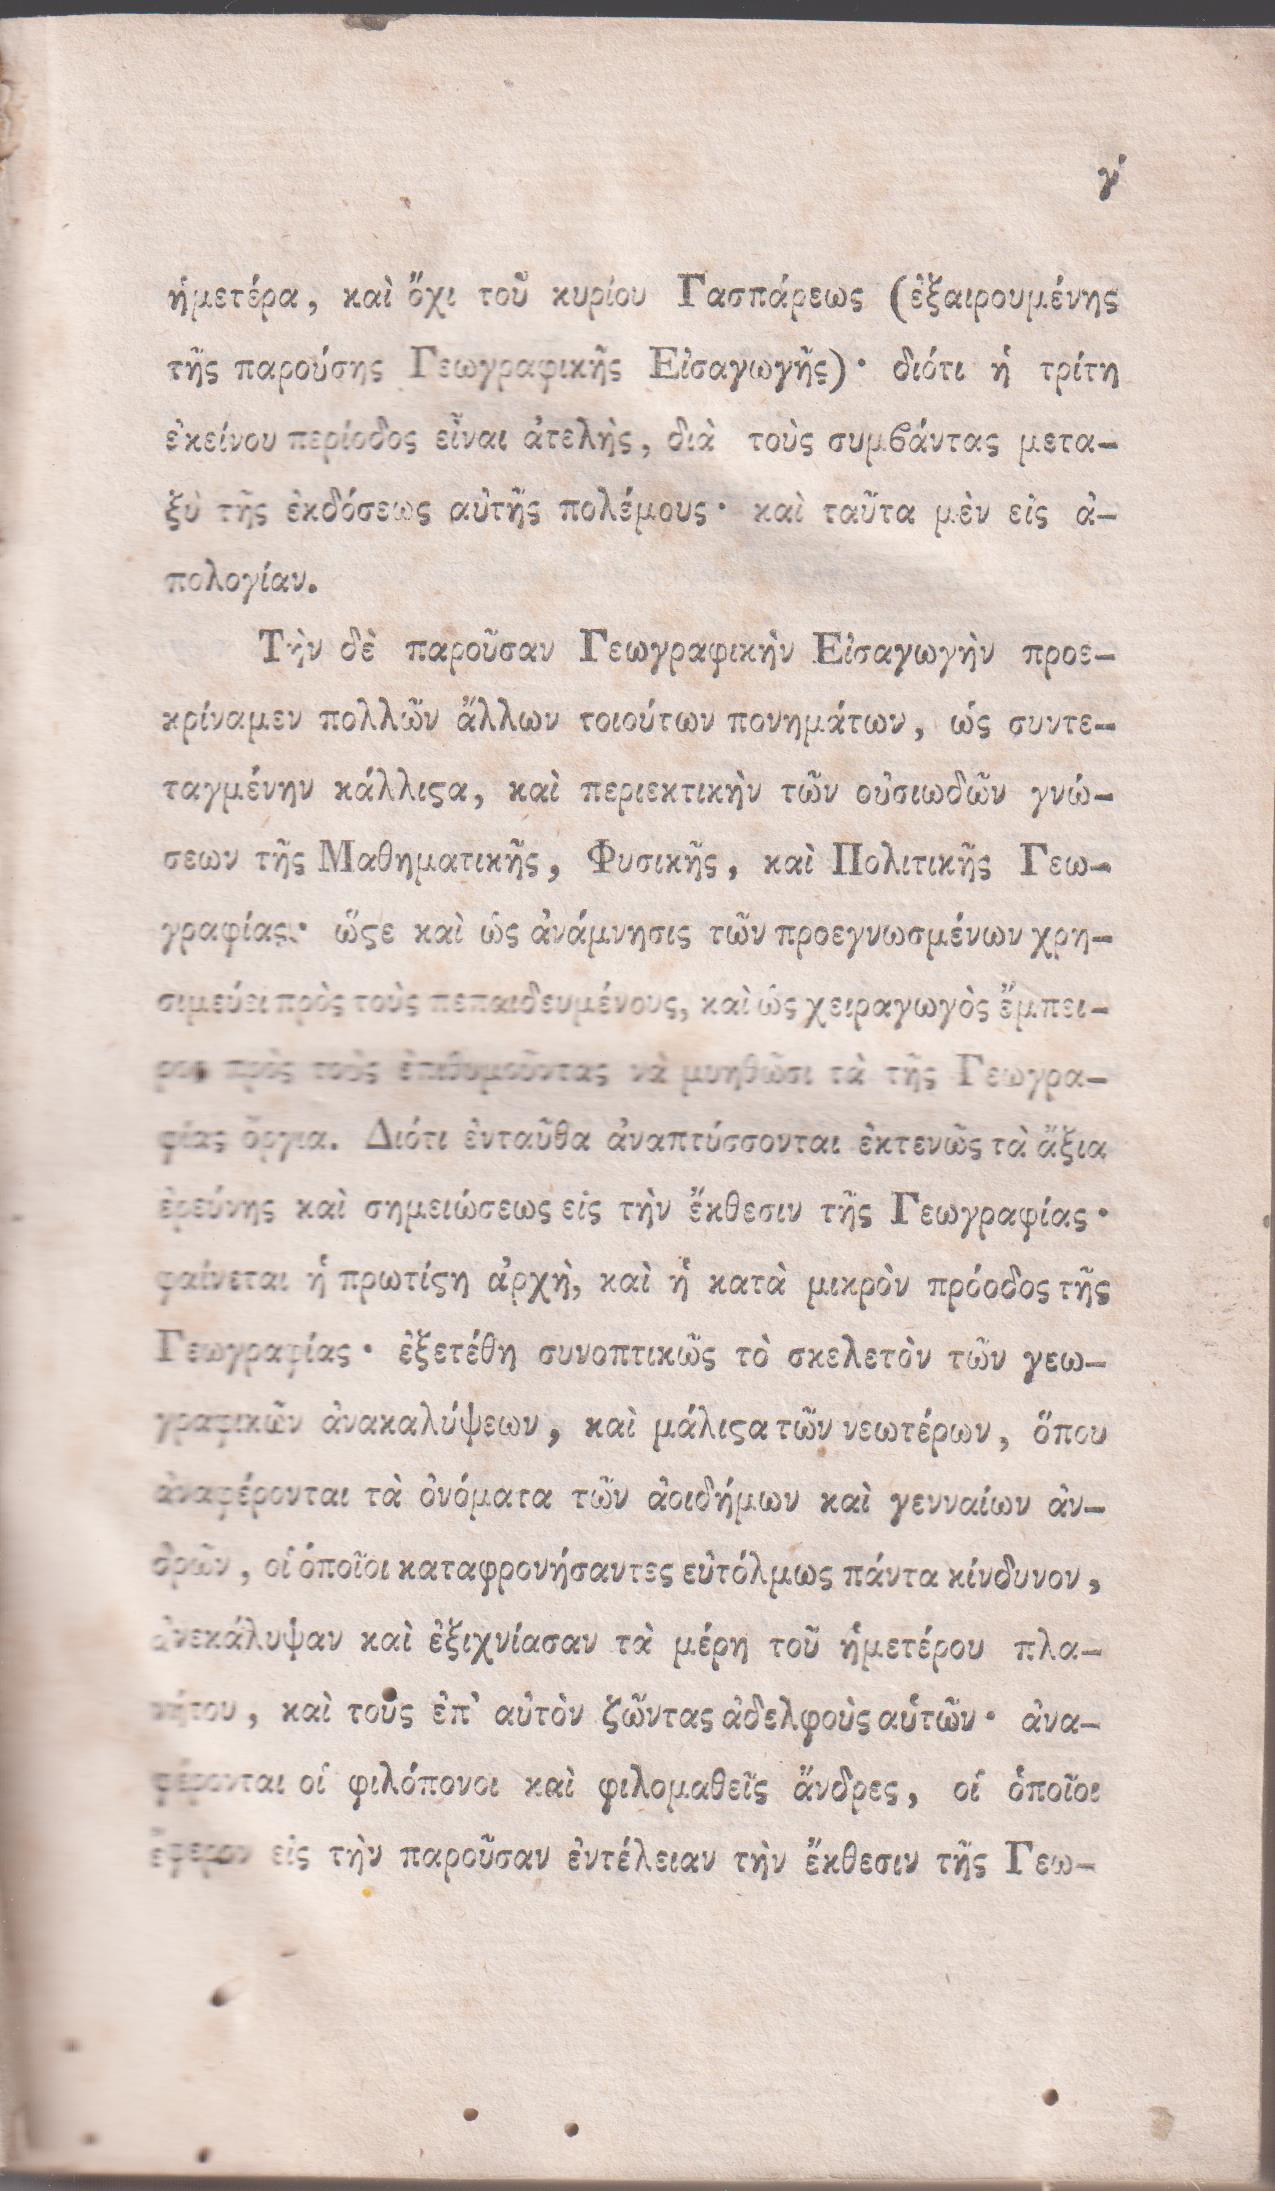 γ´
ἡμετέρα, καὶ ὄχι τοῦ κυρίου Γασπάρεως (ἐξαιρουμένης
τῆς παρούσης Γεωγραφικῆς Εἰσαγωγῆς)· διότι ἡ τρίτη
ἐκείνου περίοδος εἶναι ἀτελὴς, διὰ τοὺς συμϐάντας μετα-
ξὺ τῆς ἐκδόσεως αὐτῆς πολέμους· καὶ ταῦτα μὲν εἰς ἀ-
πολογίαν.
Τὴν δὲ παροῦσαν Γεωγραφικὴν Εἰσαγωγὴν προε-
κρίναμεν πολλῶν ἄλλων τοιούτων πονημάτων, ὡς συντε-
ταγμένην κάλλιϛα, καὶ περιεκτικὴν τῶν οὐσιωδῶν γνώ-
σεων τῆς Μαθηματικῆς, Φυσικῆς, καὶ Πολιτικῆς Γεω-
γραφίας· ὥϛε καὶ ὡς ἀνάμνησις τῶν προεγνωσμένων χρη-
σιμεύει πρὸς τοὺς πεπαιδευμένους, καὶ ὡς χειραγωγὸς ἔμπει-
ρος πρὸς τοὺς ἐπιθυμοῦντας νὰ μυηθῶσι τὰ τῆς Γεωγρα-
φίας ὄργια. Διότι ἐνταῦθα ἀναπτύσσονται ἐκτενῶς τὰ ἄξια
ἐρεύνης καὶ σημειώσεως εἰς τὴν ἔκθεσιν τῆς Γεωγραφίας·
φαίνεται ἡ πρωτίϛη ἀρχὴ, καὶ ἡ κατὰ μικρὸν πρόοδος τῆς
Γεωγραφίας· ἐξετέθη συνοπτικῶς τὸ σκελετὸν τῶν γεω-
γραφικῶν ἀνακαλύψεων, καὶ μάλιϛα τῶν νεωτέρων, ὅπου
ἀναφέρονται τὰ ὀνόματα τῶν ἀοιδήμων καὶ γενναίων ἀν-
δρῶν, οἱ ὁποῖοι καταφρονήσαντες εὐτόλμως πάντα κίνδυνον,
ἀνεκάλυψαν καὶ ἐξιχνίασαν τὰ μέρη τοῦ ἡμετέρου πλα-
νήτου, καὶ τοὺς ἐπ' αὐτὸν ζῶντας ἀδελφοὺς αὑτῶν· ἀνα-
φέρονται οἱ φιλόπονοι καὶ φιλομαθεῖς ἄνδρες, οἱ ὁποῖοι
ἔφερον εἰς τὴν παροῦσαν ἐντέλειαν τὴν ἔκθεσιν τῆς Γεω-